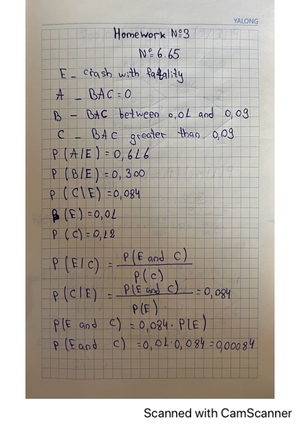 YALONG
Homework №3
№6.65
E - crash with fatality
A - BAC=0
B - BAC between 0,01 and 0,09
C - BAC greater than 0,09
P(A/E)=0,616
P(B/E)=0,300
P(C|E)=0,084
P(E)=0,01
P(C)=0,18
P(E/C) = P(E and C)
P(C)
P(C|E) = P(E and C) = 0,084
P(E)
P(E and C) = 0,084·P(E)
P(E and C) = 0,01·0,084=0,00084
Scanned with CamScanner